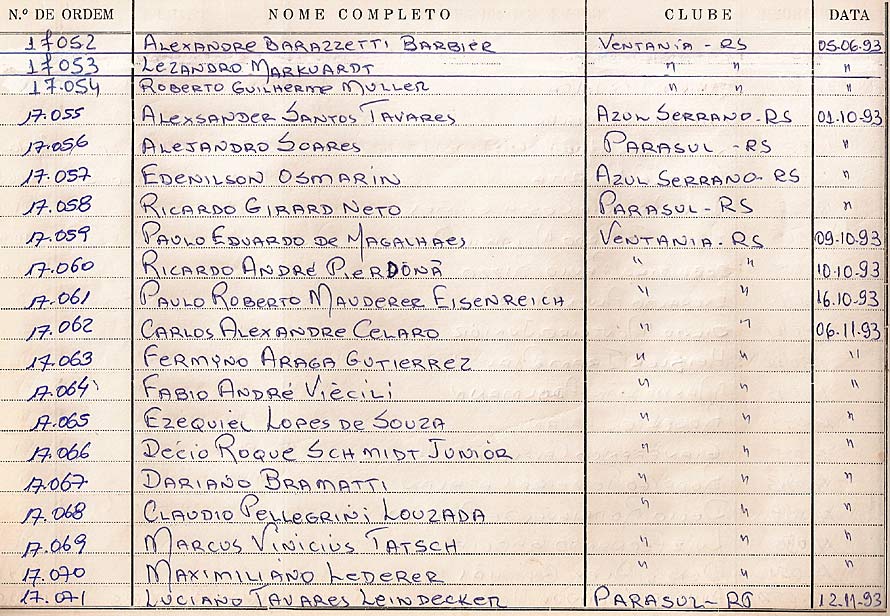 N.º DE ORDEM NOME COMPLETO CLUBE DATA
17052 ALEXANDRE BARAZZETTI BARBIER VENTANIA - RS 05.06.93
17053 LEZANDRO MARKUARDT " " "
17.054 ROBERTO GUILHERME MULLER " " "
17.055 ALEXSANDER SANTOS TAVARES AZUL SERRANO - RS 01.10.93
17.056 ALEJANDRO SOARES PARASUL - RS "
17.057 EDENILSON OSMARIN AZUL SERRANO - RS "
17.058 RICARDO GIRARD NETO PARASUL - RS "
17.059 PAULO EDUARDO DE MAGALHAES VENTANIA - RS 09.10.93
17.060 RICARDO ANDRÉ PIERDONÃ " " 10.10.93
17.061 PAULO ROBERTO MAUDERER EISENREICH " " 16.10.93
17.062 CARLOS ALEXANDRE CELARO " " 06.11.93
17.063 FERMYNO ARAGA GUTIERREZ " " "
17.064 FABIO ANDRÉ VIÈCILI " " "
17.065 EZEQUIEL LOPES DE SOUZA " " "
17.066 DÉCIO ROQUE SCHMIDT JUNIOR " " "
17.067 DARIANO BRAMATTI " " "
17.068 CLAUDIO PELLEGRINI LOUZADA " " "
17.069 MARCUS VINICIUS TATSCH " " "
17.070 MAXIMILIANO LEDERER " " "
17.071 LUCIANO TAVARES LEINDECKER PARASUL - RS 12.11.93